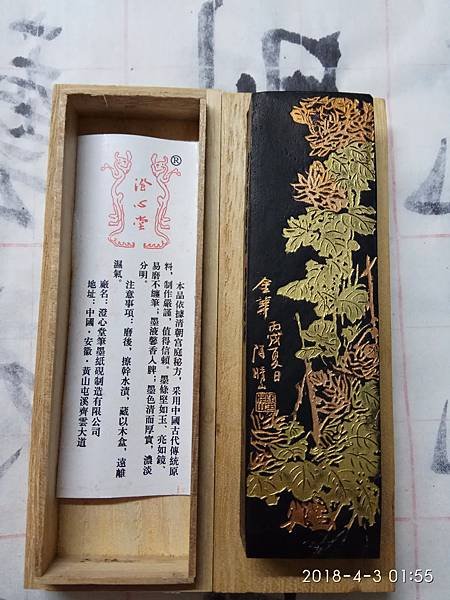 澄心堂
®
本品依據清朝宮庭秘方，采用中國古代傳統原
料，制作嚴謹，值得信賴。墨條堅如玉、亮如鏡、
易磨不纏筆；墨液馨香入脾；墨色清而厚實，濃淡
分明。
注意事項：磨後，擦幹水漬，藏以木盒，遠離
濕氣。
廠名：澄心堂筆墨紙硯制造有限公司
地址：中國·安徽·黃山屯溪齊雲大道
金華
丙戌夏日
2018-4-3 01:55